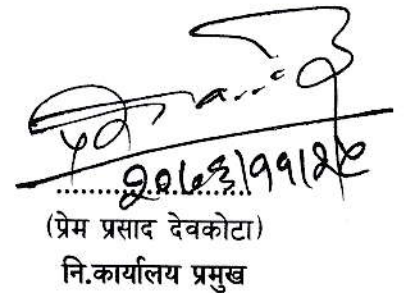 २०७६।११।२९
(प्रेम प्रसाद देवकोटा)
नि.कार्यालय प्रमुख